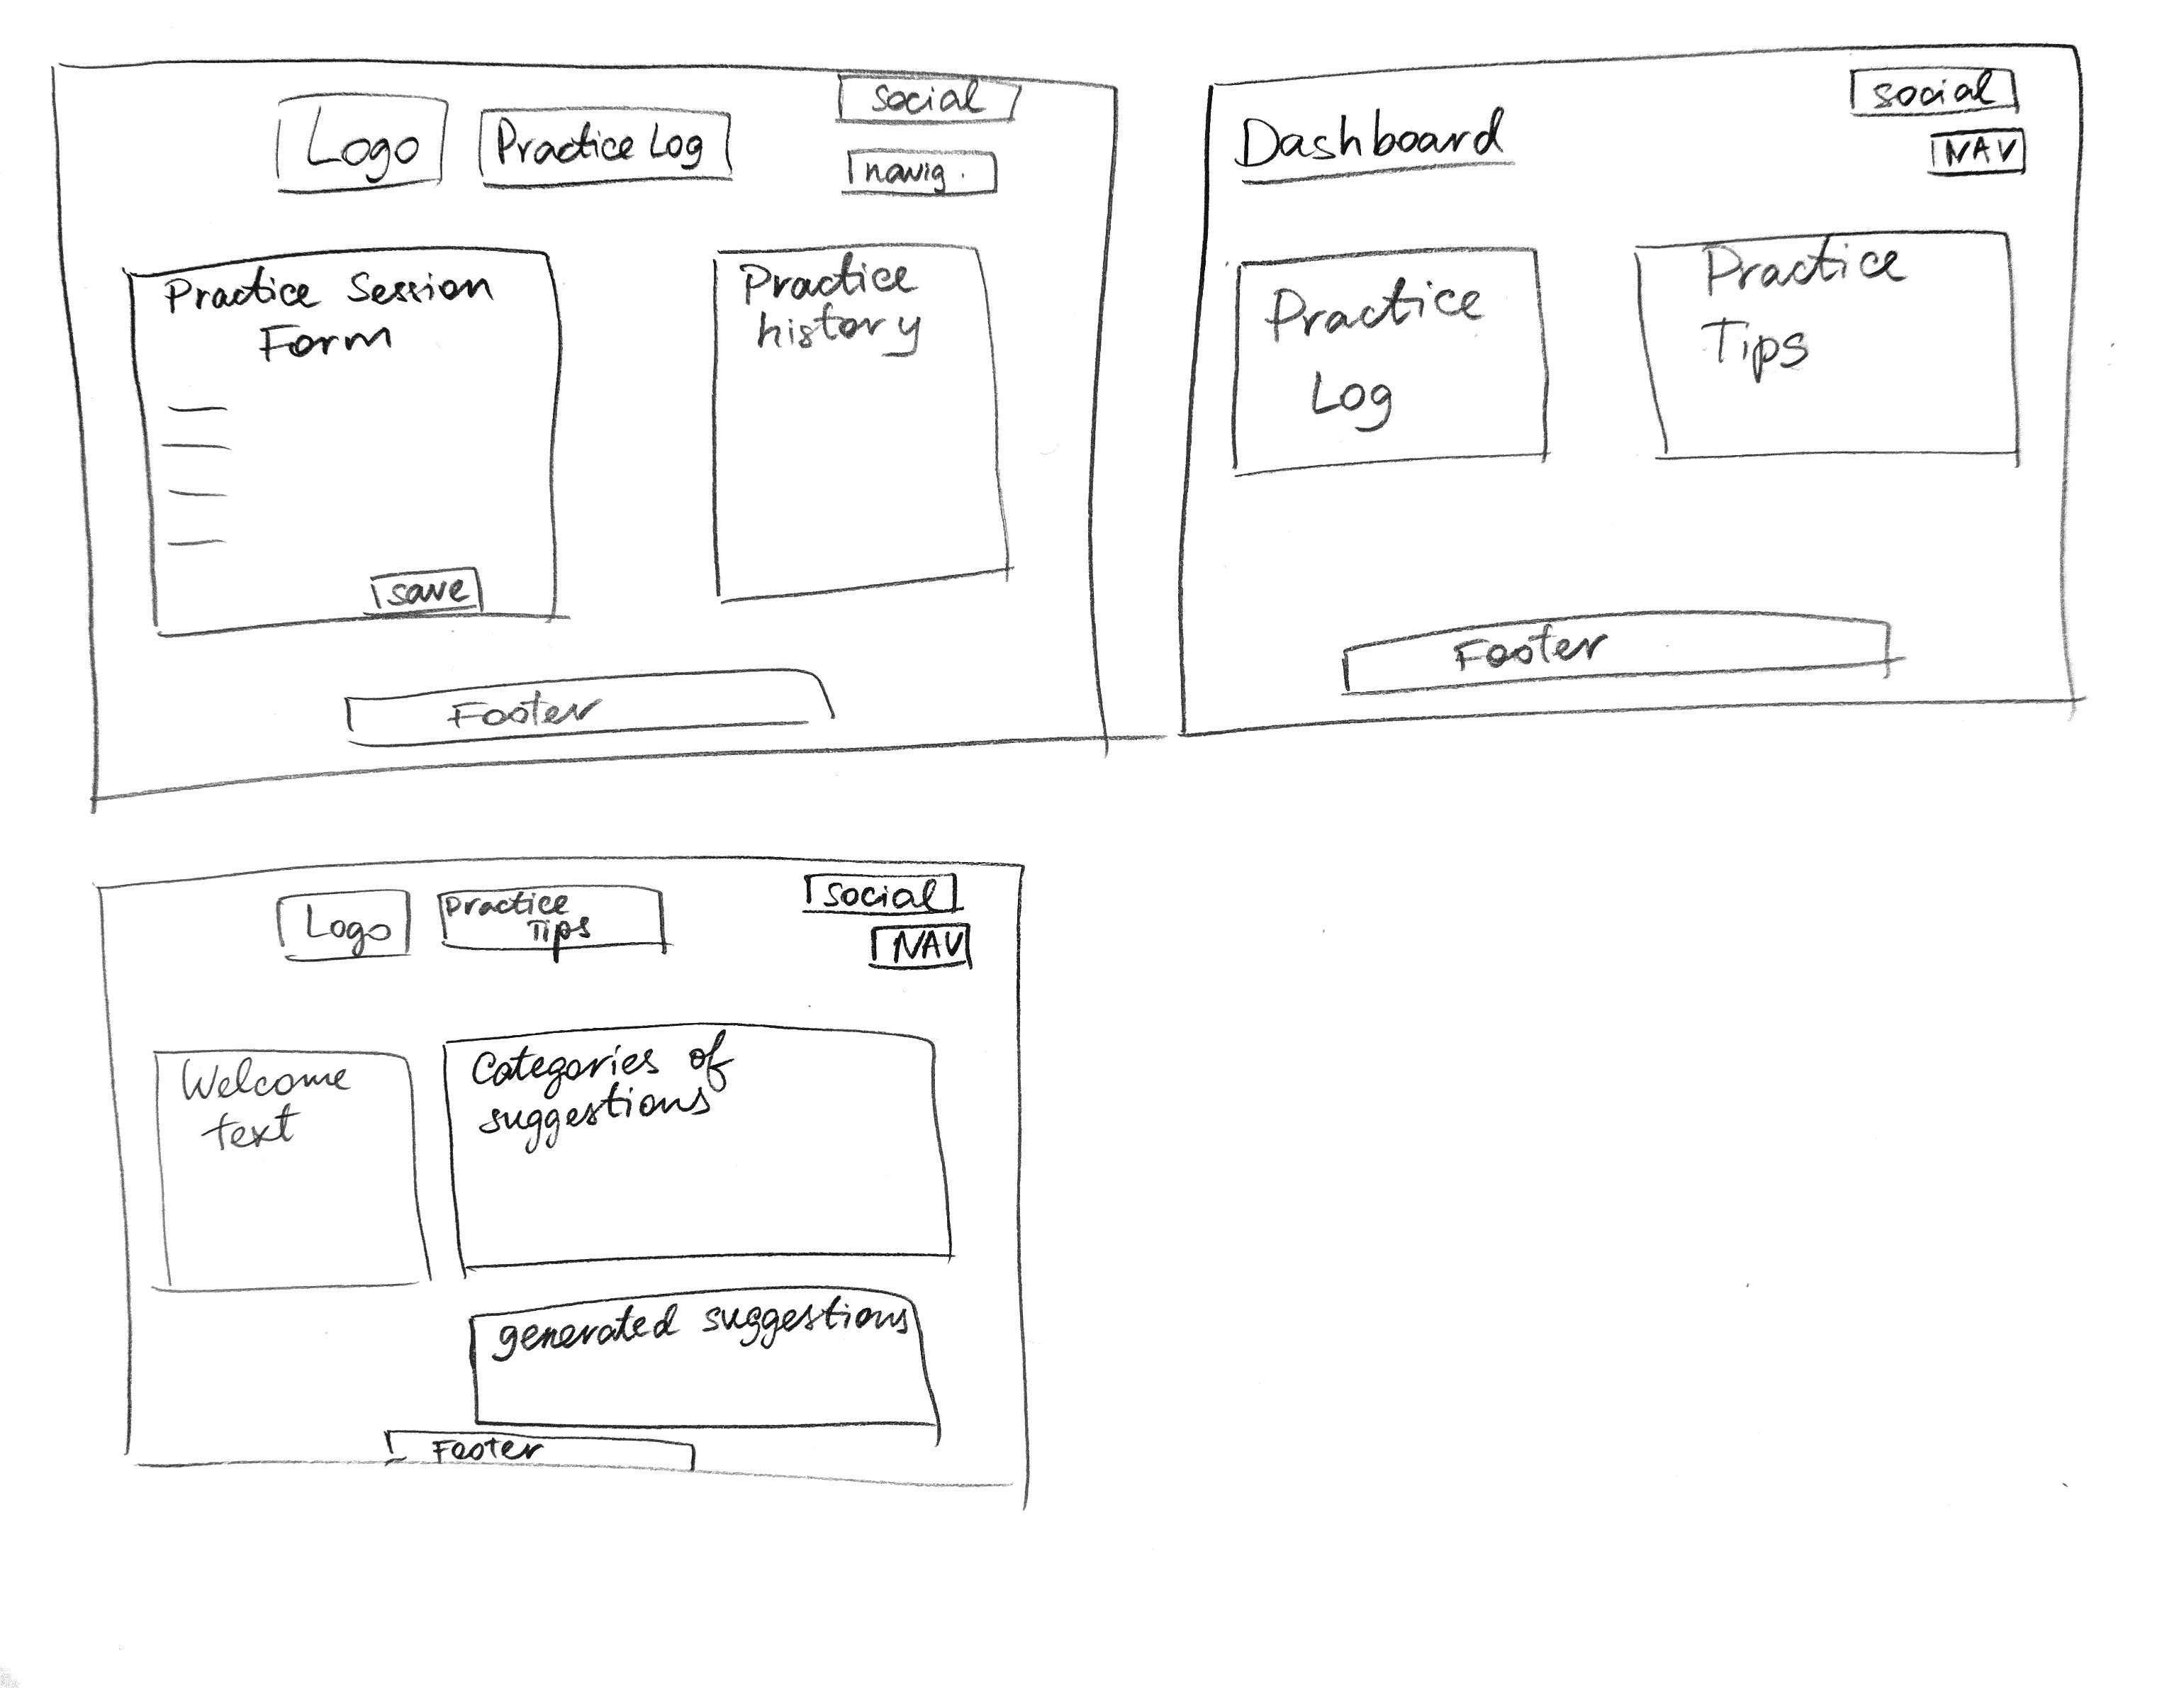 Logo
Practice Log
social
navig.
Practice Session
Form
save
Practice
history
Footer
Dashboard
social
NAV
Practice
Log
Practice
Tips
Footer
Logo
Practice
Tips
social
NAV
Welcome
text
Categories of
suggestions
generated suggestions
Footer